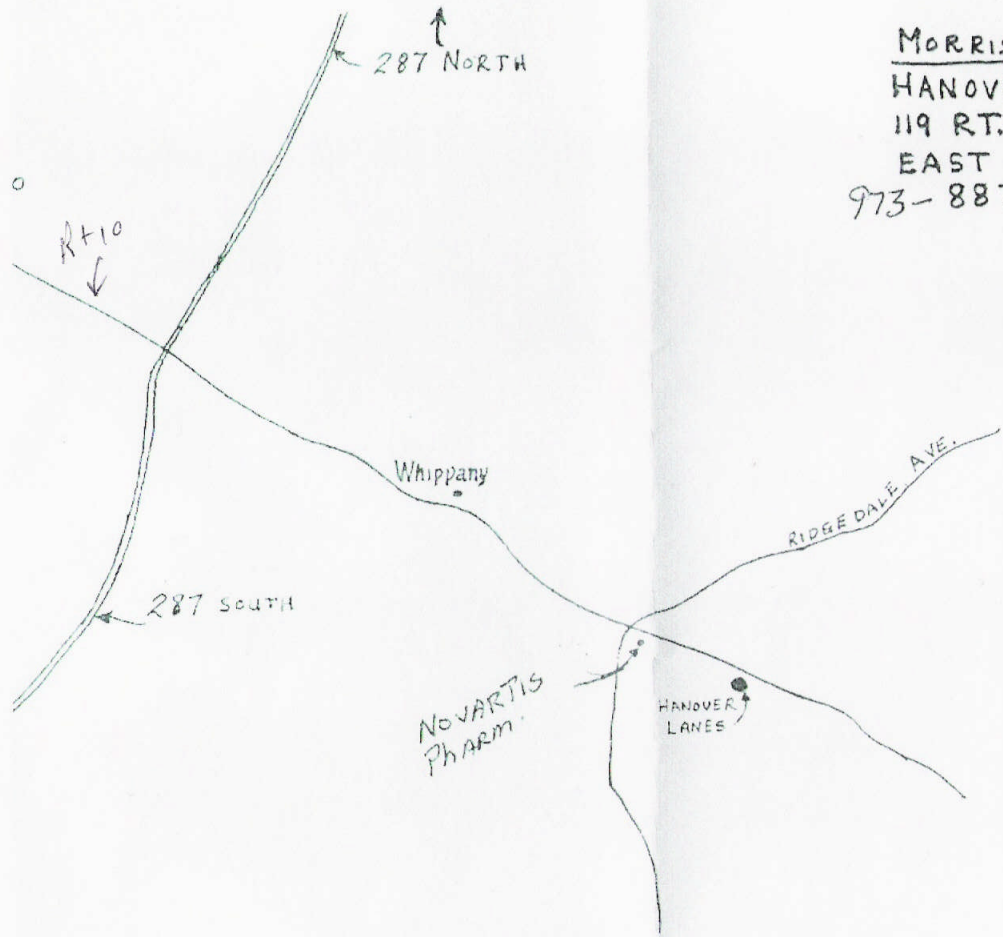 287 NORTH
MORRIS
HANOV
119 RT.
EAST
973-887
Rt 10
Whippany
RIDGEDALE AVE.
287 SOUTH
NOVARTIS
PhARM.
HANOVER
LANES